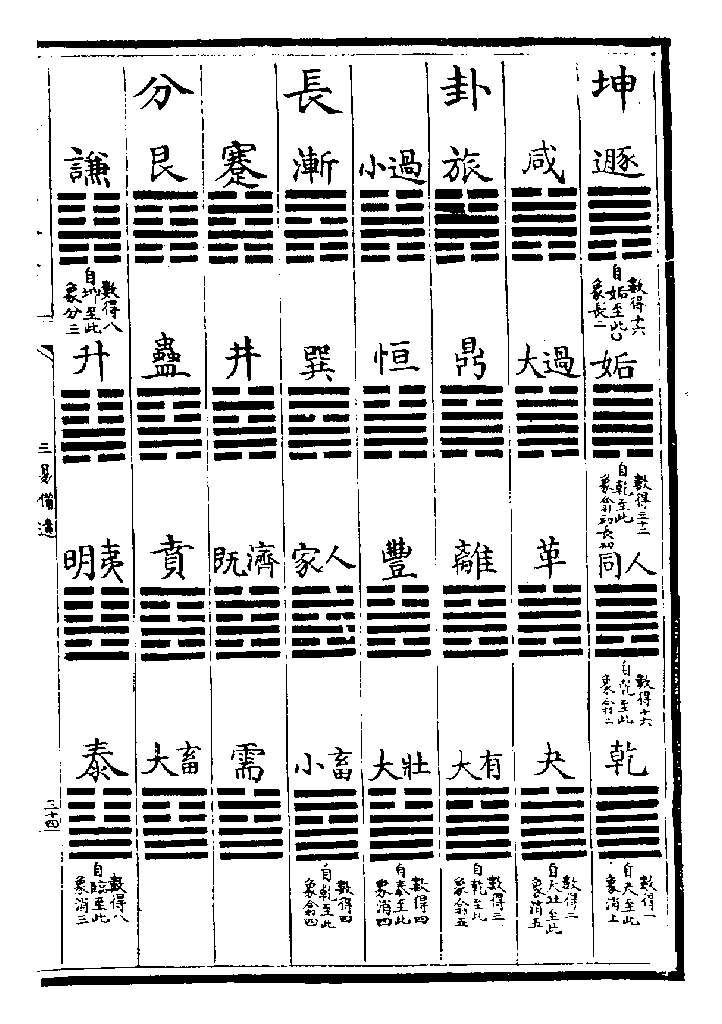 坤
遯
數得十六
自姤至此
象長二
姤
數得三十二
自乾至此
象翕初長初
同人
數得十六
自乾至此
象翕二
乾
數得一
自夬至此
象消上
咸
大過
革
夬
數得二
自大壯至此
象消五
卦
旅
鼎
離
大有
數得三
自乾至此
象翕五
小過
恒
豐
大壯
數得四
自泰至此
象消四
長
漸
巽
家人
小畜
數得四
自乾至此
象翕四
蹇
井
既濟
需
分
艮
蠱
賁
大畜
謙
數得八
自坤至此
象分三
升
明夷
泰
數得八
自臨至此
象消三
三易備遺
三十四